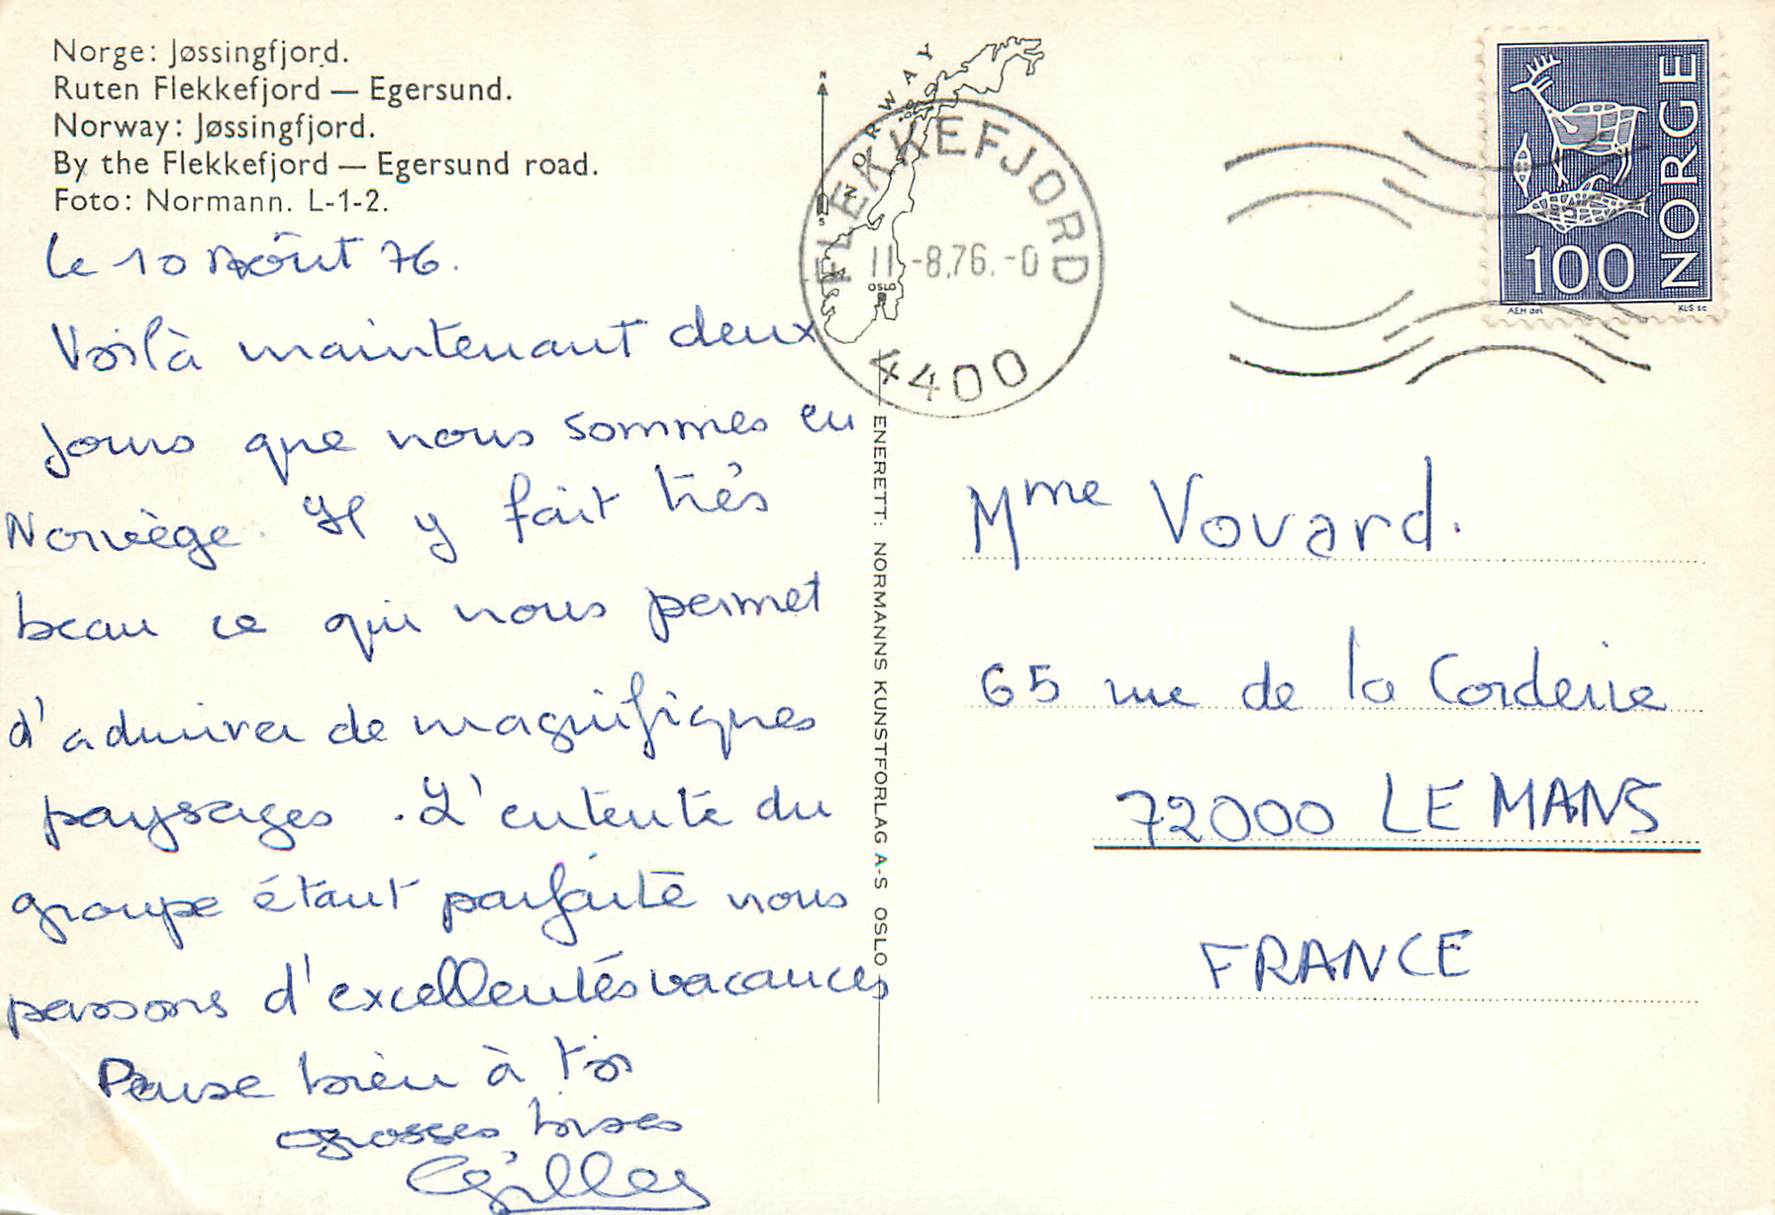 Norge: Jøssingfjord.
Ruten Flekkefjord — Egersund.
Norway: Jøssingfjord.
By the Flekkefjord — Egersund road.
Foto: Normann. L-1-2.
Le 10 Août 76.
Voilà maintenant deux
jours que nous sommes en
Norvège. Il y fait très
beau ce qui nous permet
d'admirer de magnifiques
paysages. L'entente du
groupe étant parfaite nous
passons d'excellentes vacances
Pense bien à toi
grosses bises
Gilles
N
NORWAY
S
OSLO
FLEKKEFJORD
11.-8.76.-0
4400
ENERETT: NORMANNS KUNSTFORLAG A-S OSLO
NORGE
100
AEH del
KLS sc
Mme Vovard.
65 rue de la Corderie
72000 LE MANS
FRANCE